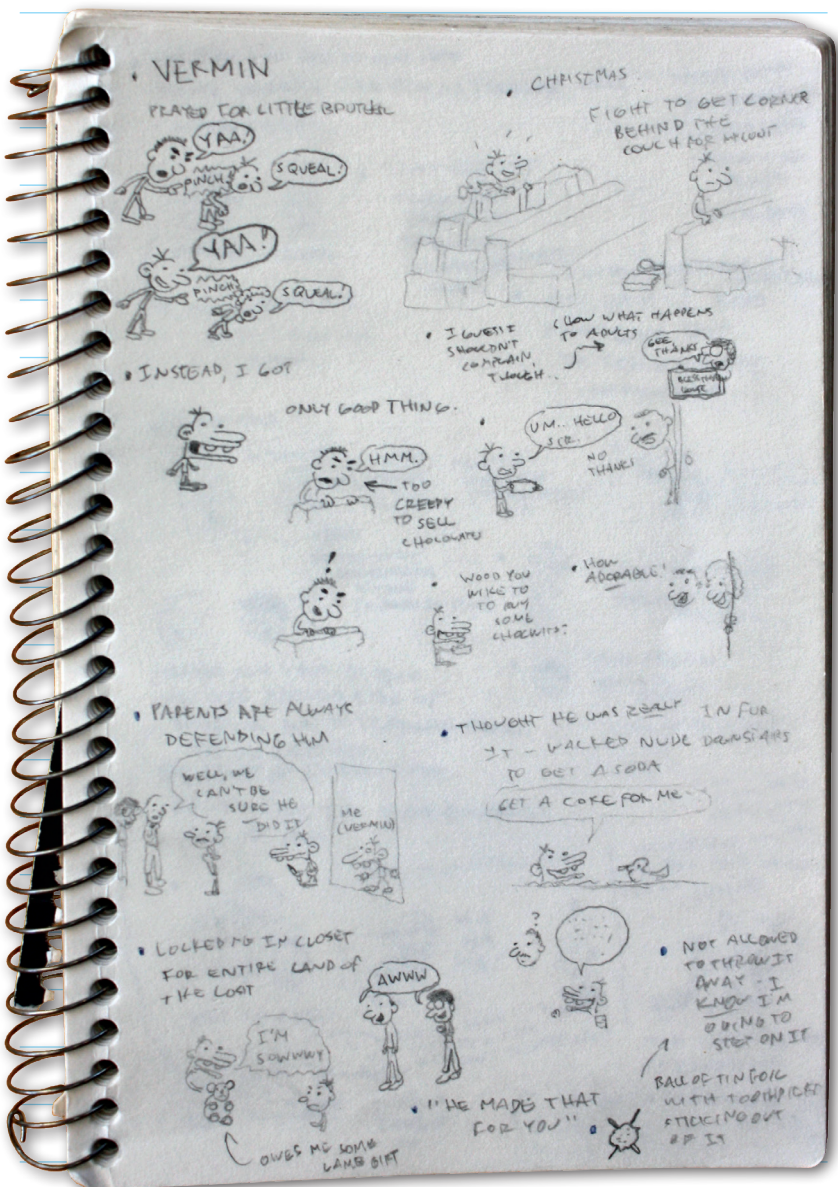 • VERMIN
PRAYED FOR LITTLE BROTHER
YAA!
PINCH!
SQUEAL!
YAA!
PINCH!
SQUEAL!
• CHRISTMAS.
FIGHT TO GET CORNER
BEHIND THE
COUCH FOR
• I GUESS I
SHOULDN'T
COMPLAIN,
THOUGH..
SHOW WHAT HAPPENS
TO ADULTS
GEE
THANKS
• INSTEAD, I GOT
ONLY GOOD THING.
HMM.
TOO
CREEPY
TO SELL
CHOCOLATES
UM.. HELLO
SIR.
NO
THANKS
!
• WOOD YOU
WIKE TO
TO BUY
SOME
CHOCWITS?
• HOW
ADORABLE!
• PARENTS ARE ALWAYS
DEFENDING HIM
WELL, WE
CAN'T BE
SURE HE
DID IT
ME
(VERMIN)
• THOUGHT HE WAS REALLY IN FOR
IT - WALKED NUDE DOWNSTAIRS
TO GET A SODA
GET A COKE FOR ME
• LOCKED ME IN CLOSET
FOR ENTIRE LAND OF
THE LOST
I'M
SOWWWY
OWES ME SOME
LAME GIFT
AWWW
?
• "HE MADE THAT
FOR YOU"
• NOT ALLOWED
TO THROW IT
AWAY - I
KNOW I'M
GOING TO
STEP ON IT
BALL OF TIN FOIL
WITH TOOTHPICKS
STICKING OUT
OF IT